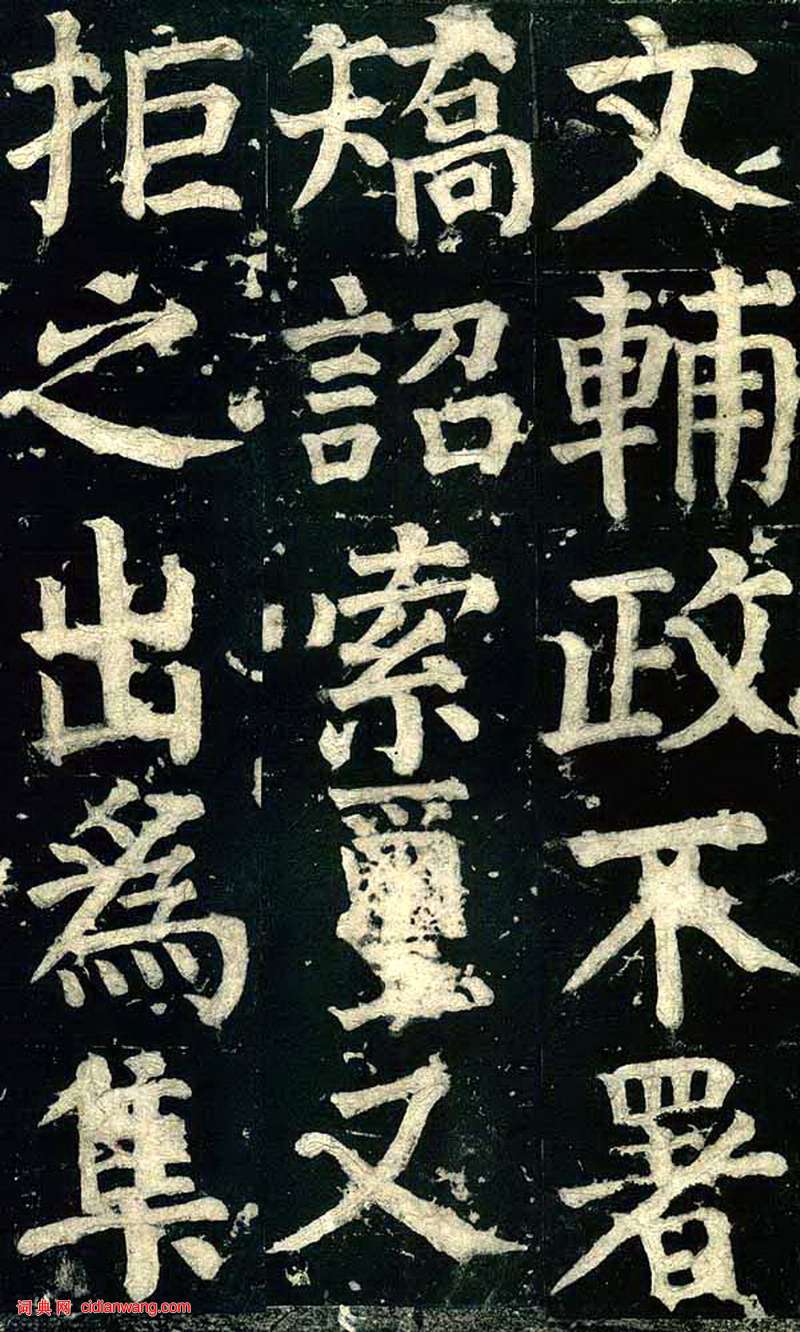 文輔政不署
矯詔索璽又
拒之出為集
词典网 cidianwang.com